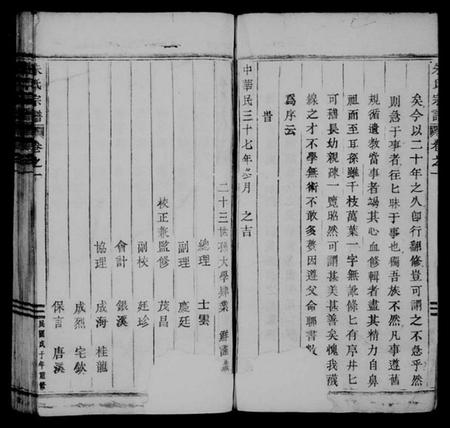 朱氏宗譜
卷之一
矣今以二十年之久卽行翻修豈可謂之不急乎然
則急于事者往匕昧于事也獨吾族不然凡事遵舊
規循遺教當事者竭其心血修輯者盡其精力自鼻
祖而至耳孫雖千枝萬葉一字無訛條匕有序井匕
可稽長幼親疎一覽昭然可謂甚美甚善矣愧我
線之才不學無術不敢多贅因遵父命聊書數
爲序云
旹
中華民三十七年 月 之吉
二十三世孫大學肄業
總理 士雲
副理 慶廷
校正兼監修 茂昌
副校 廷珍
會計 銀溪
協理 成海 桂龍
成烈 宅欽
保言 唐溪
朱氏宗譜
卷之一
民國戊子年重修